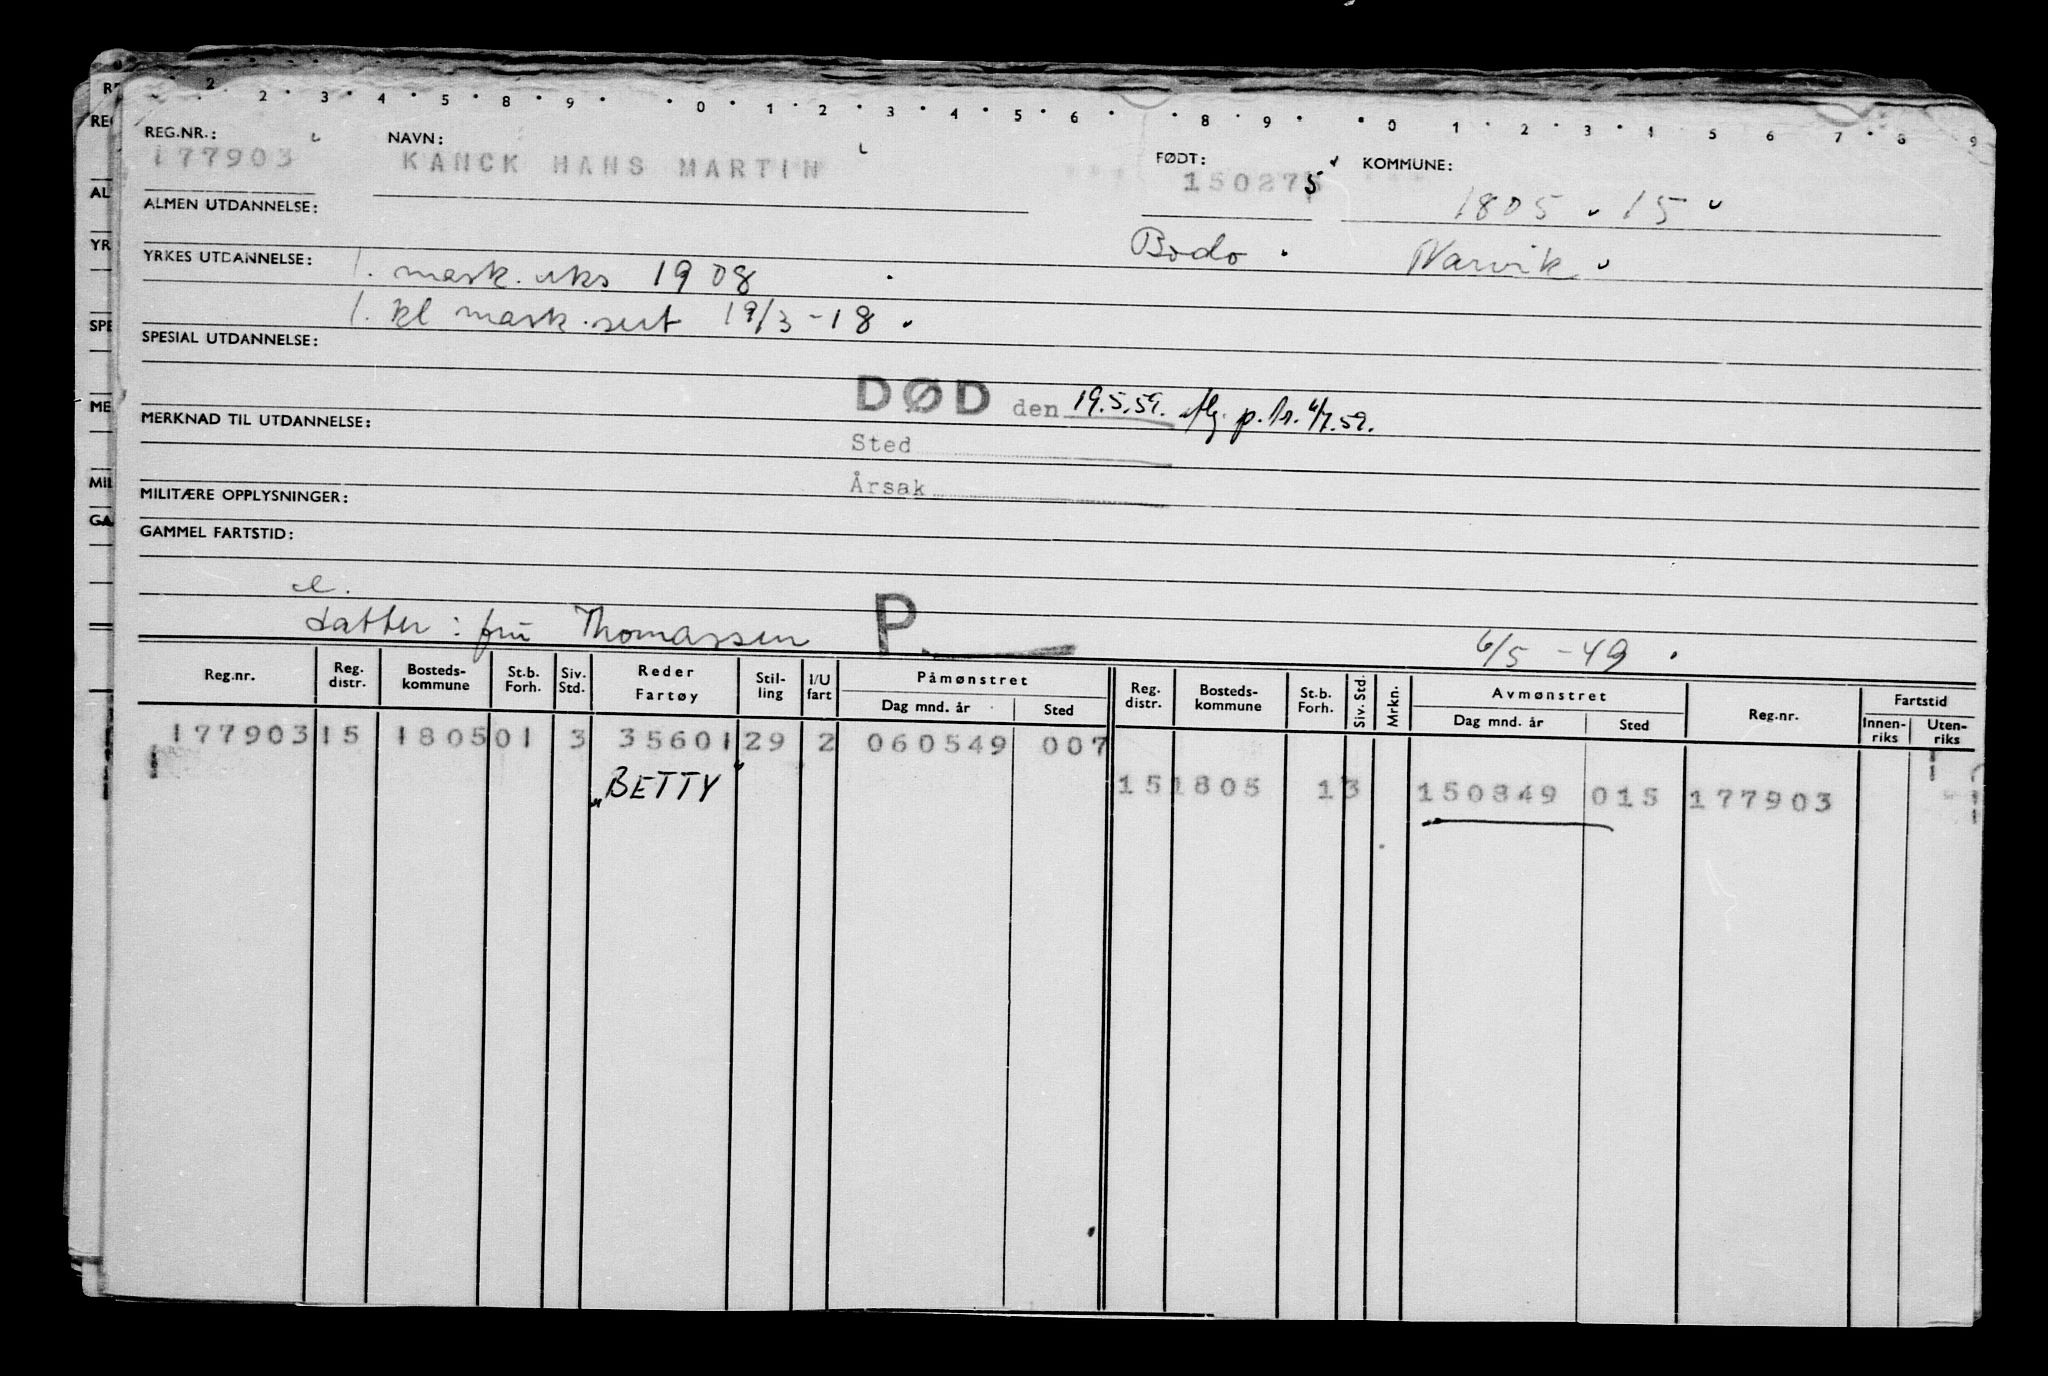 2 2 3 4 5 8 9 0 1 2 3 4 5 6 8 9 0 1 2 3 4 5 6 7 8 9
REG.NR.: NAVN: FØDT: KOMMUNE:
177903 KANCK HANS MARTIN 15027 5 1805 15
ALMEN UTDANNELSE:
Bodo Narvik
YRKES UTDANNELSE: 1. mask. uks 1908
1. kl mask.sert 19/3-18
SPESIAL UTDANNELSE:
DØD den 19.5.59. flg. p. br. 6/7.59.
MERKNAD TIL UTDANNELSE:
Sted
Årsak
MILITÆRE OPPLYSNINGER:
GAMMEL FARTSTID:
e.
datter: fru Thomassen P. 6/5-49
Reg.nr. Reg. distr. Bosteds-kommune St.b. Forh. Siv. Std. Reder Fartøy Stil-ling I/U fart Påmønstret Dag mnd. år Sted Reg. distr. Bosteds-kommune St.b. Forh. Siv. Std. Mrkn. Avmønstret Dag mnd. år Sted Reg.nr. Fartstid Innen-riks Uten-riks
177903 15 1805 01 3 35601 29 2 060549 007
„BETTY" 15 1805 1 3 150849 015 177903